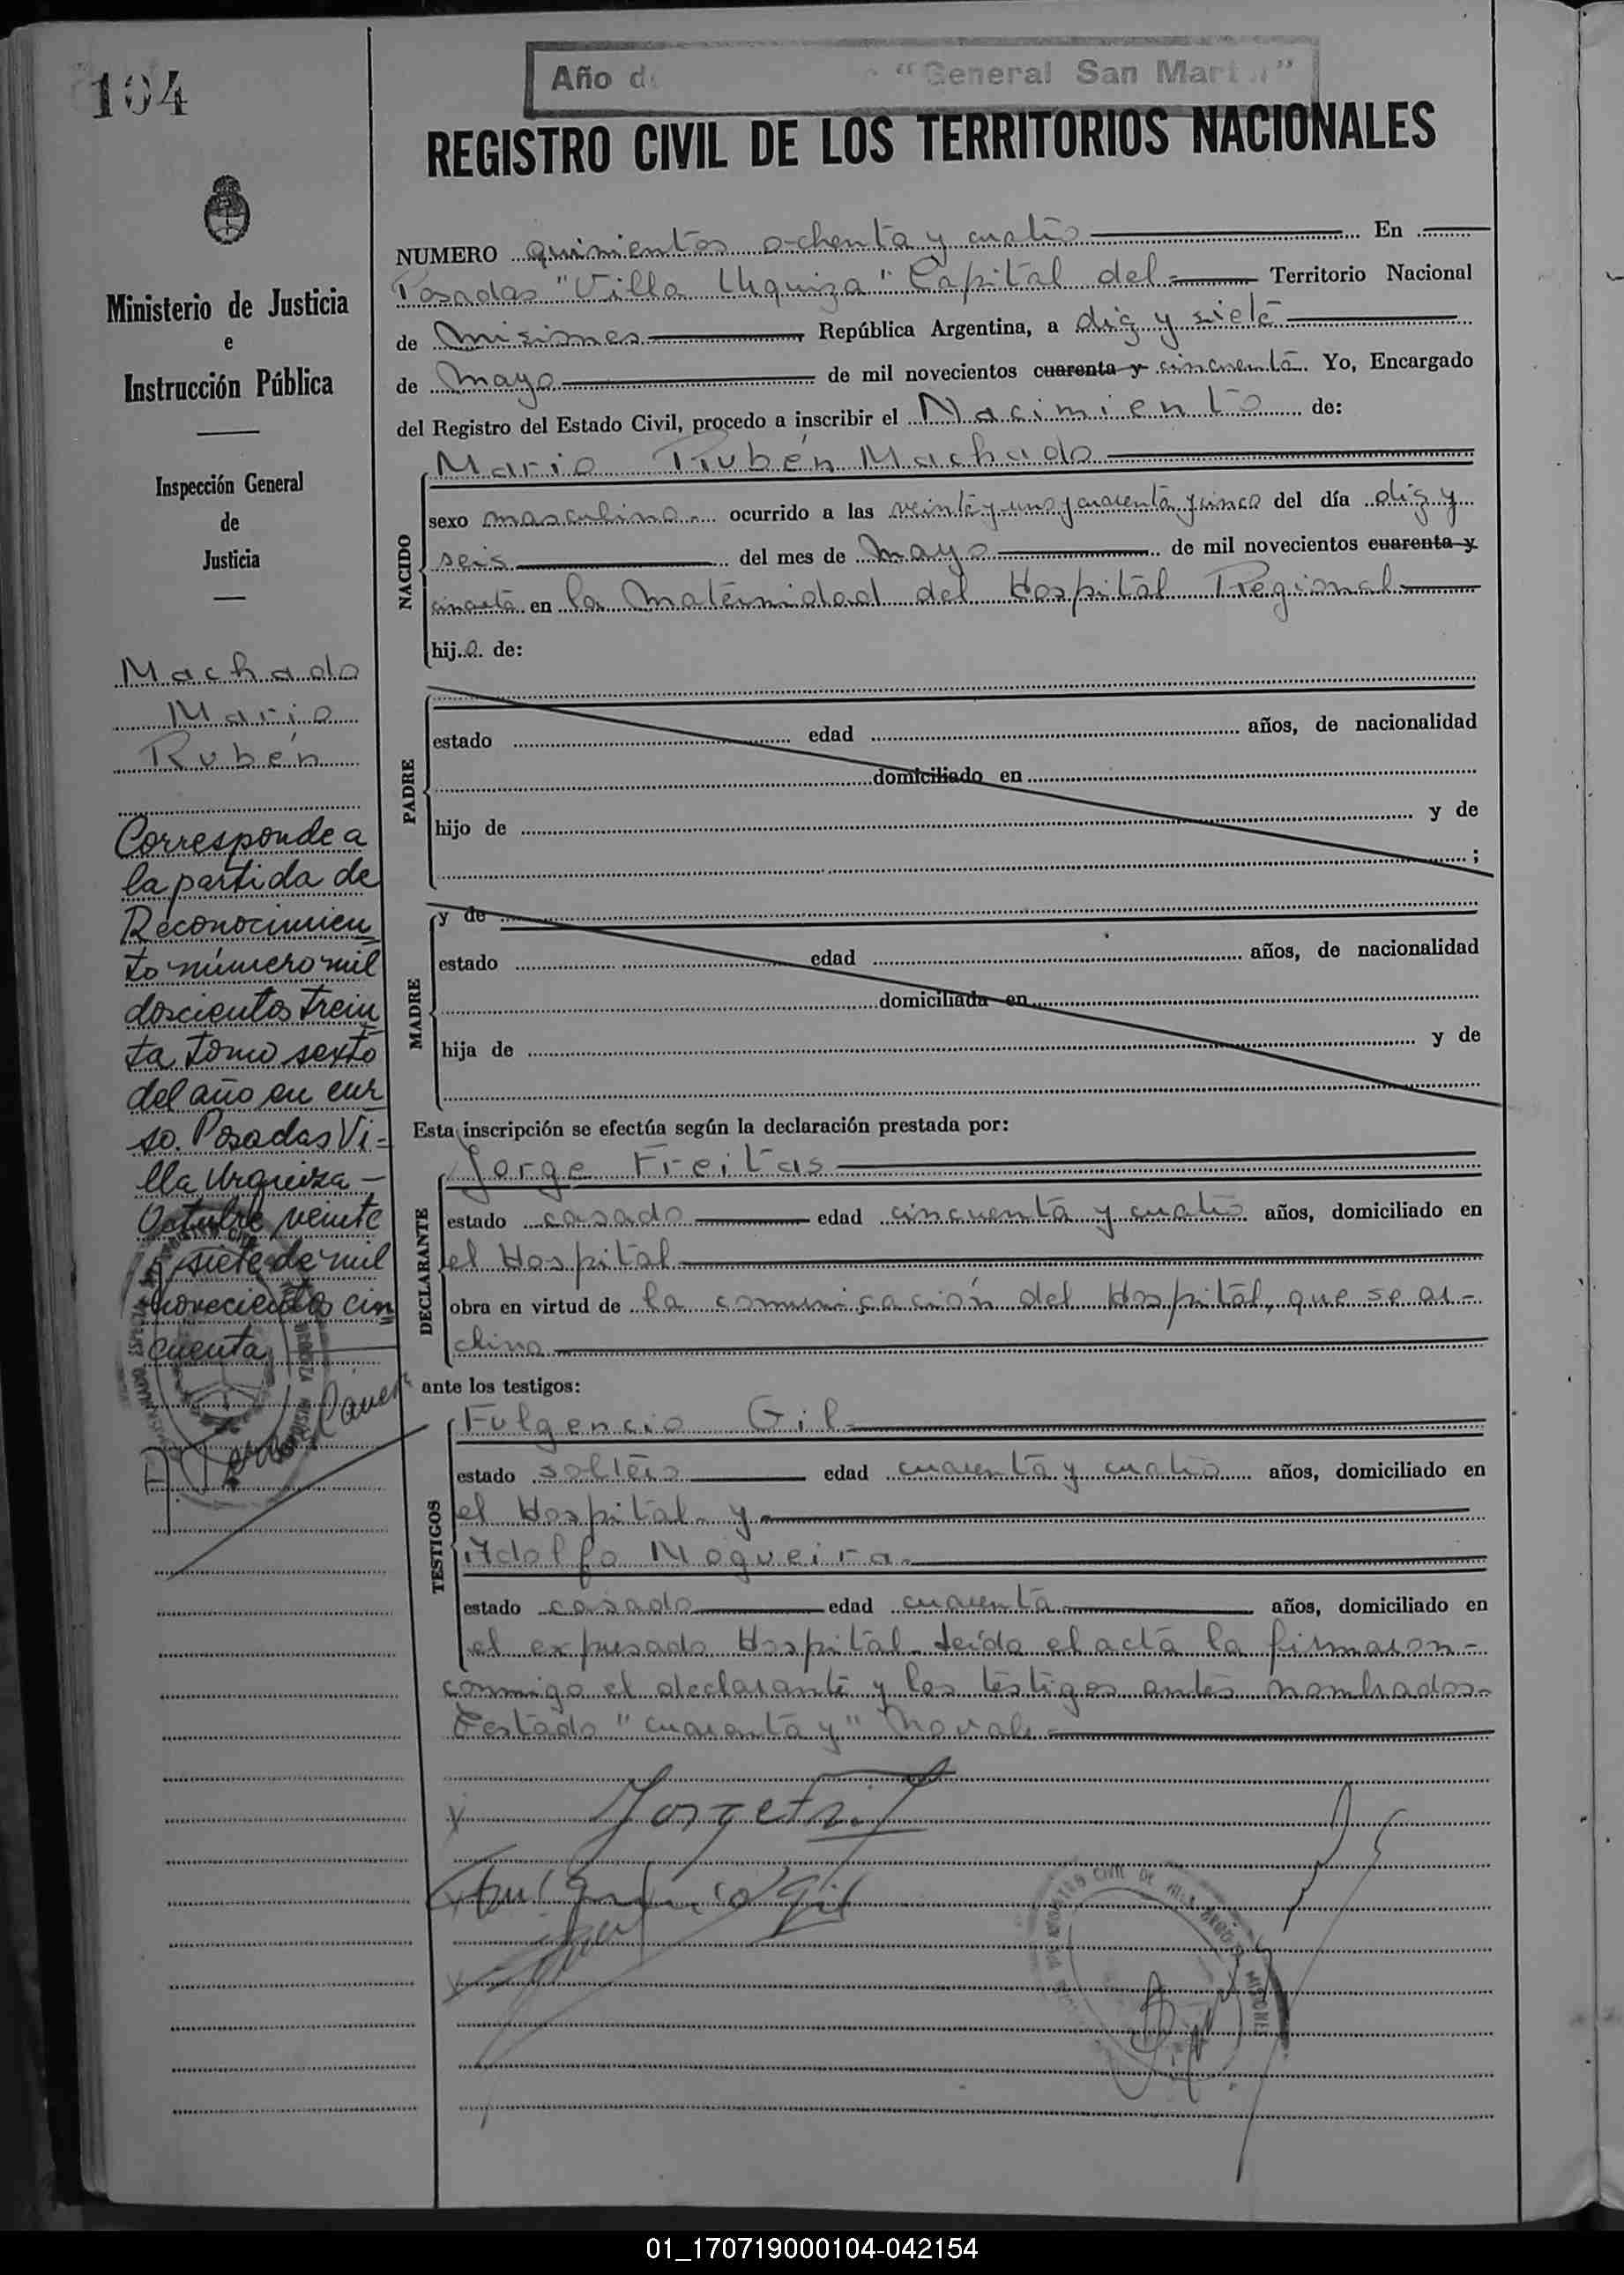 104
Año de "General San Martín"
REGISTRO CIVIL DE LOS TERRITORIOS NACIONALES
Ministerio de Justicia
e
Instrucción Pública
Inspección General
de
Justicia
Machado
Mario
Rubén
Corresponde a
la partida de
Reconocimien
to número mil
doscientos trein
ta tomo sexto
del año en cur
so. Posadas Vi=
lla Urquiza –
Octubre veinte
y siete de mil
novecientos cin
cuenta
NUMERO quinientos ochenta y cuatro En
Posadas "Villa Urquiza" Capital del Territorio Nacional
de Misiones República Argentina, a diez y siete
de Mayo de mil novecientos cuarenta y cincuenta. Yo, Encargado
del Registro del Estado Civil, procedo a inscribir el Nacimiento de:
NACIDO
Mario Rubén Machado
sexo masculino - ocurrido a las veinte y uno y cuarenta y cinco del día diez y
seis del mes de Mayo de mil novecientos cuarenta y
cincuenta en la Maternidad del Hospital Regional
hijo de:
PADRE
estado edad años, de nacionalidad
domiciliado en
hijo de y de
;
MADRE
y de
estado edad años, de nacionalidad
domiciliada en
hija de y de
Esta inscripción se efectúa según la declaración prestada por:
DECLARANTE
Jorge Freitas
estado casado edad cincuenta y cuatro años, domiciliado en
el Hospital
obra en virtud de la comunicación del Hospital, que se ar-
chiva
ante los testigos:
TESTIGOS
Fulgencio Gil
estado soltero edad cuarenta y cuatro años, domiciliado en
el Hospital y
Adolfo Mogueira
estado casado edad cuarenta años, domiciliado en
el expresado Hospital. Leída el acta la firmaron -
conmigo el declarante y los testigos antes nombrados.
Testado "cuarenta y" No vale
01_170719000104-042154